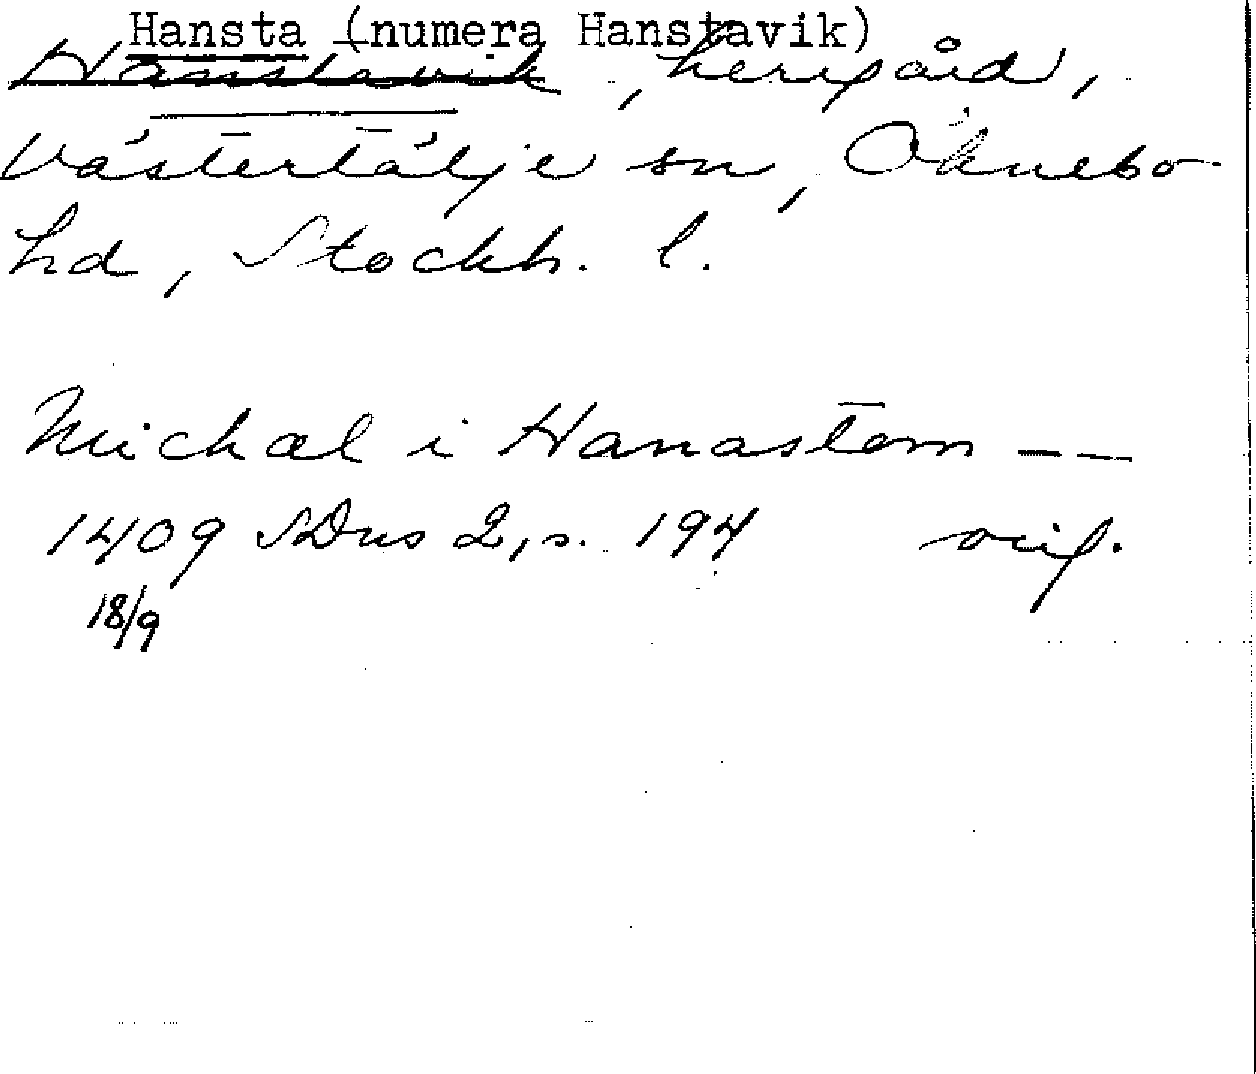 Hansta (numera Hanstavik)
Hanstavik, herrgård,
Västertälje sn, Öknebo
hd, Stockh. l.
Michæl i Hanastom — —
1409 SDns 2, s. 194 orig.
18/9